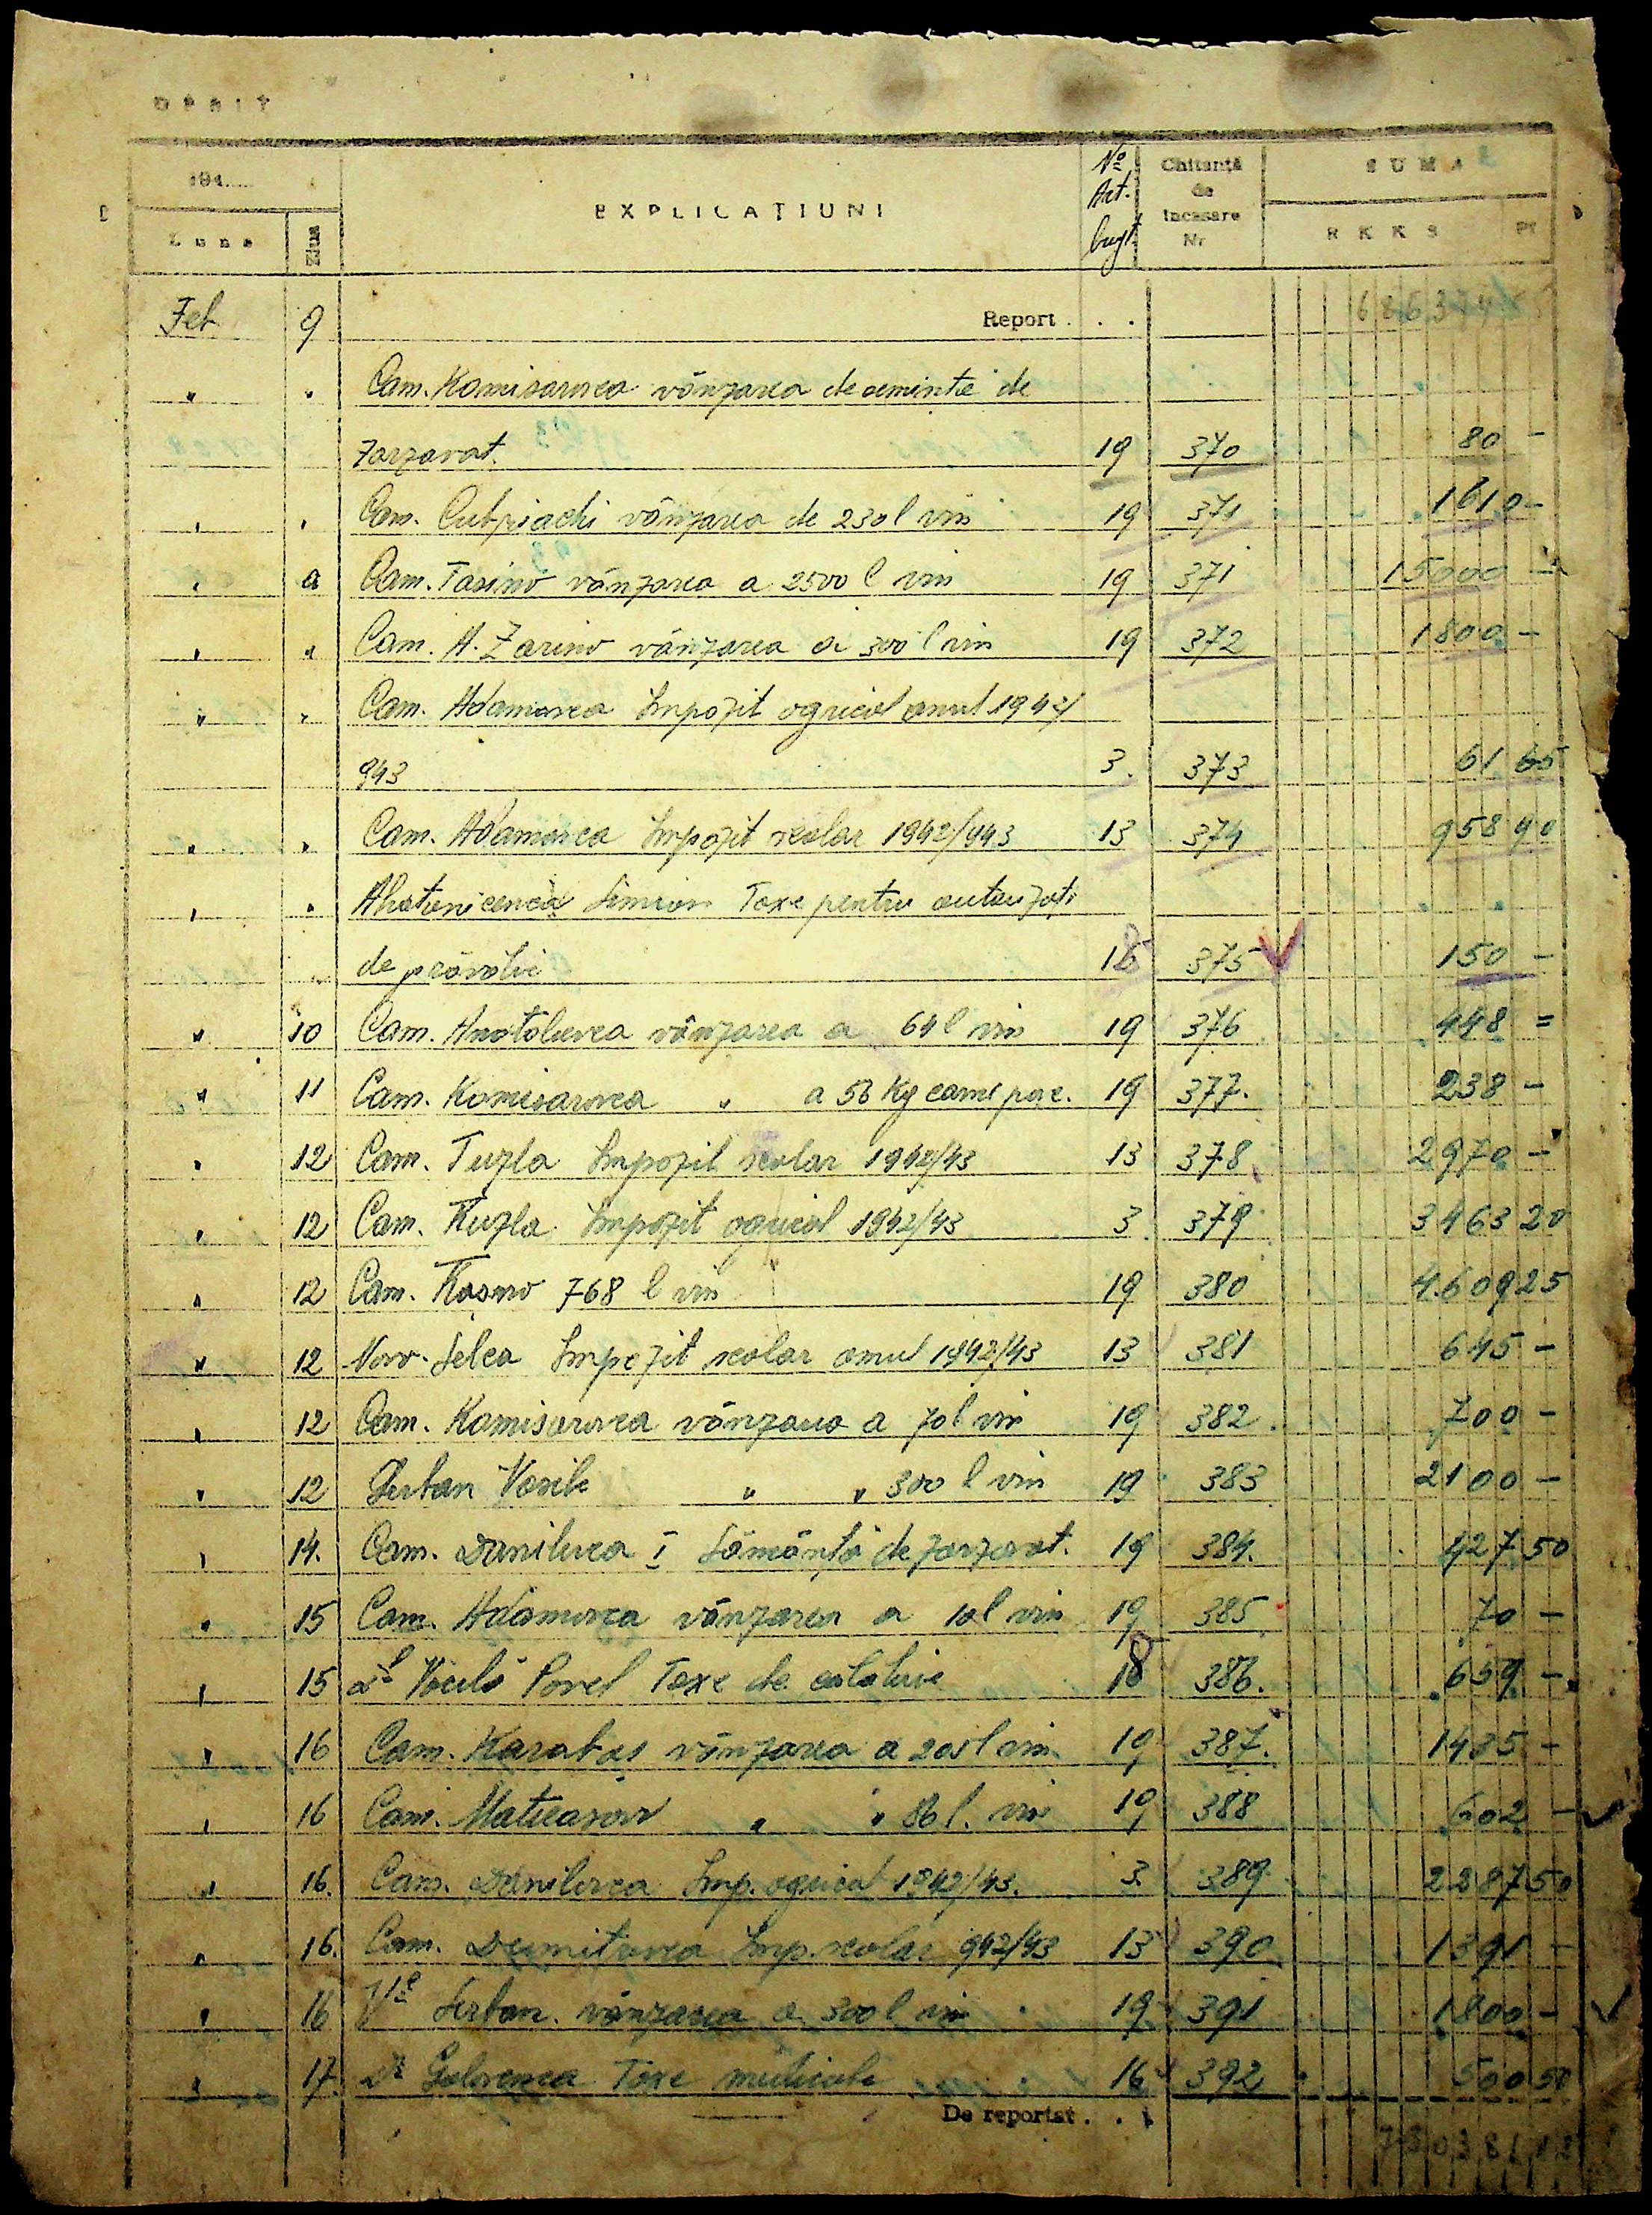 DEBIT
194.....
EXPLICAȚIUNI
No Art. bugt.
Chitanță de încasare Nr
SUMA
Luna
Ziua
RKKS
Pf
Feb. 9 Report . . .
" " Com. Komisarovca vânzarea de seminte de
zarzavat. 19 370 80 -
" " Com. Cubriachi vânzarea de 230 l vin 19 371 1610 -
" a Com. Tasino vânzarea a 2500 l vin 19 371 15000 -
" " Com. A. Zarino vânzarea a 300 l vin 19 372 1800 -
" " Com. Adamovca Impozit agricol anul 1942/
943 3. 373 61 65
" " Com. Adamovca Impozit scolar 1942/943 13 374 958 90
" " Simion Taxe pentru autorizați
de prăvălie 375 150 -
" 10 Com. Anatolievca vânzarea a 64 l vin 19 376 448 =
" 11 Com. Komisarovca " a 56 Kg carne porc. 19 377. 238 -
" 12 Com. Tuzla Impozit scolar 1942/43 13 378 2970 -
" 12 Com. Tuzla Impozit agricol 1942/43 3 379 3463 20
" 12 Com. Kasino 768 l vin 19 380 4609 25
" 12 Novo-Selca Impozit scolar anul 1942/43 13 381 645 -
" 12 Com. Komisarovca vânzarea a 70 l vin 19 382. 700 -
" 12 Serban Vasile " " 300 l vin 19 383 2100 -
" 14. Com. Danilovca I Sămânță de zarzavat. 19 384. 427 50
" 15 Com. Adamovca vânzarea a 10 l vin 19 385 70 -
" 15 Dl Pavel Taxe de 18 386. 659 -
" 16 Com. Karabaș vânzarea a 205 l vin 19 387. 1435 -
" 16 Com. Matieasovv " " 86 l. vin 19 388 602 -
" 16. Com. Danilovca Imp. agricol 1942/43. 3. 389 2287 50
" 16. Com. Dumitrovca Imp. scolar 942/43 13 390 1391 -
" 16 Vle Serban. vânzarea a 300 l vin 19 391 1800 -
" 17. Dr Taxe medicale 16 392 500 50
De reportat . . .